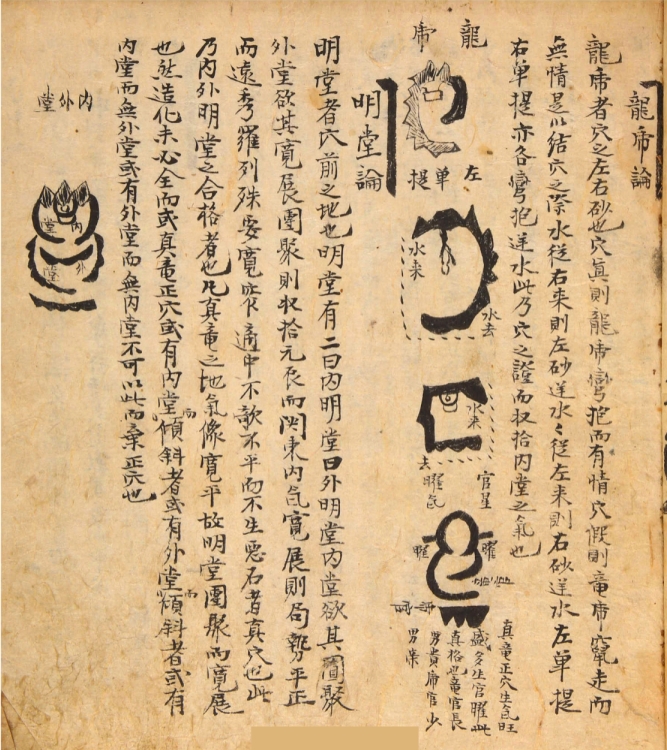 龍帝論
龍帝者穴之左右砂也穴眞則龍帝彎抱而有情穴假則竜帝竄走而
無情是以結穴之際水從右来則左砂逆水〻從左来則右砂逆水左单提
右单提亦各彎抱逆水此乃穴之證而収拾内堂之氣也
龍帝
左单提
水来
水去
水来
去
官星
曜气
曜
曜
真竜正穴生气旺
盛多生官曜此
真格也竜官長
男貴帝官少
男榮
明堂論
明堂者穴前之地也明堂有二曰内明堂曰外明堂内堂欲其圓聚
外堂欲其寛展團聚則収拾元辰而関束内气寛展則局勢平正
而遠秀羅列殊要寛窄適中不欹不平而不生惡石者真穴也此
乃内外明堂之合格者也凡真竜之地氣像寛平故明堂團聚而寛展
也然造化未必全而或真竜正穴或有内堂而傾斜者或有外堂而傾斜者或有
内堂而無外堂或有外堂而無内堂不可以此而棄正穴也
内外堂
内堂
外堂